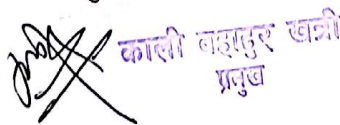 काली बहादुर खत्री
प्रमुख